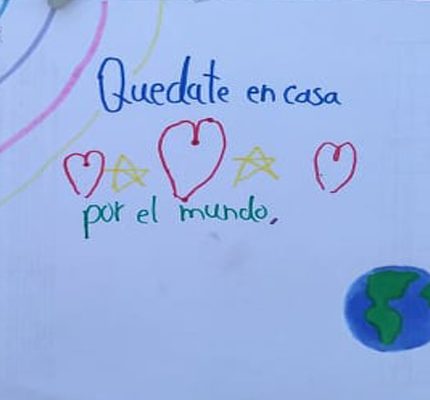 Quedate en casa
por el mundo.